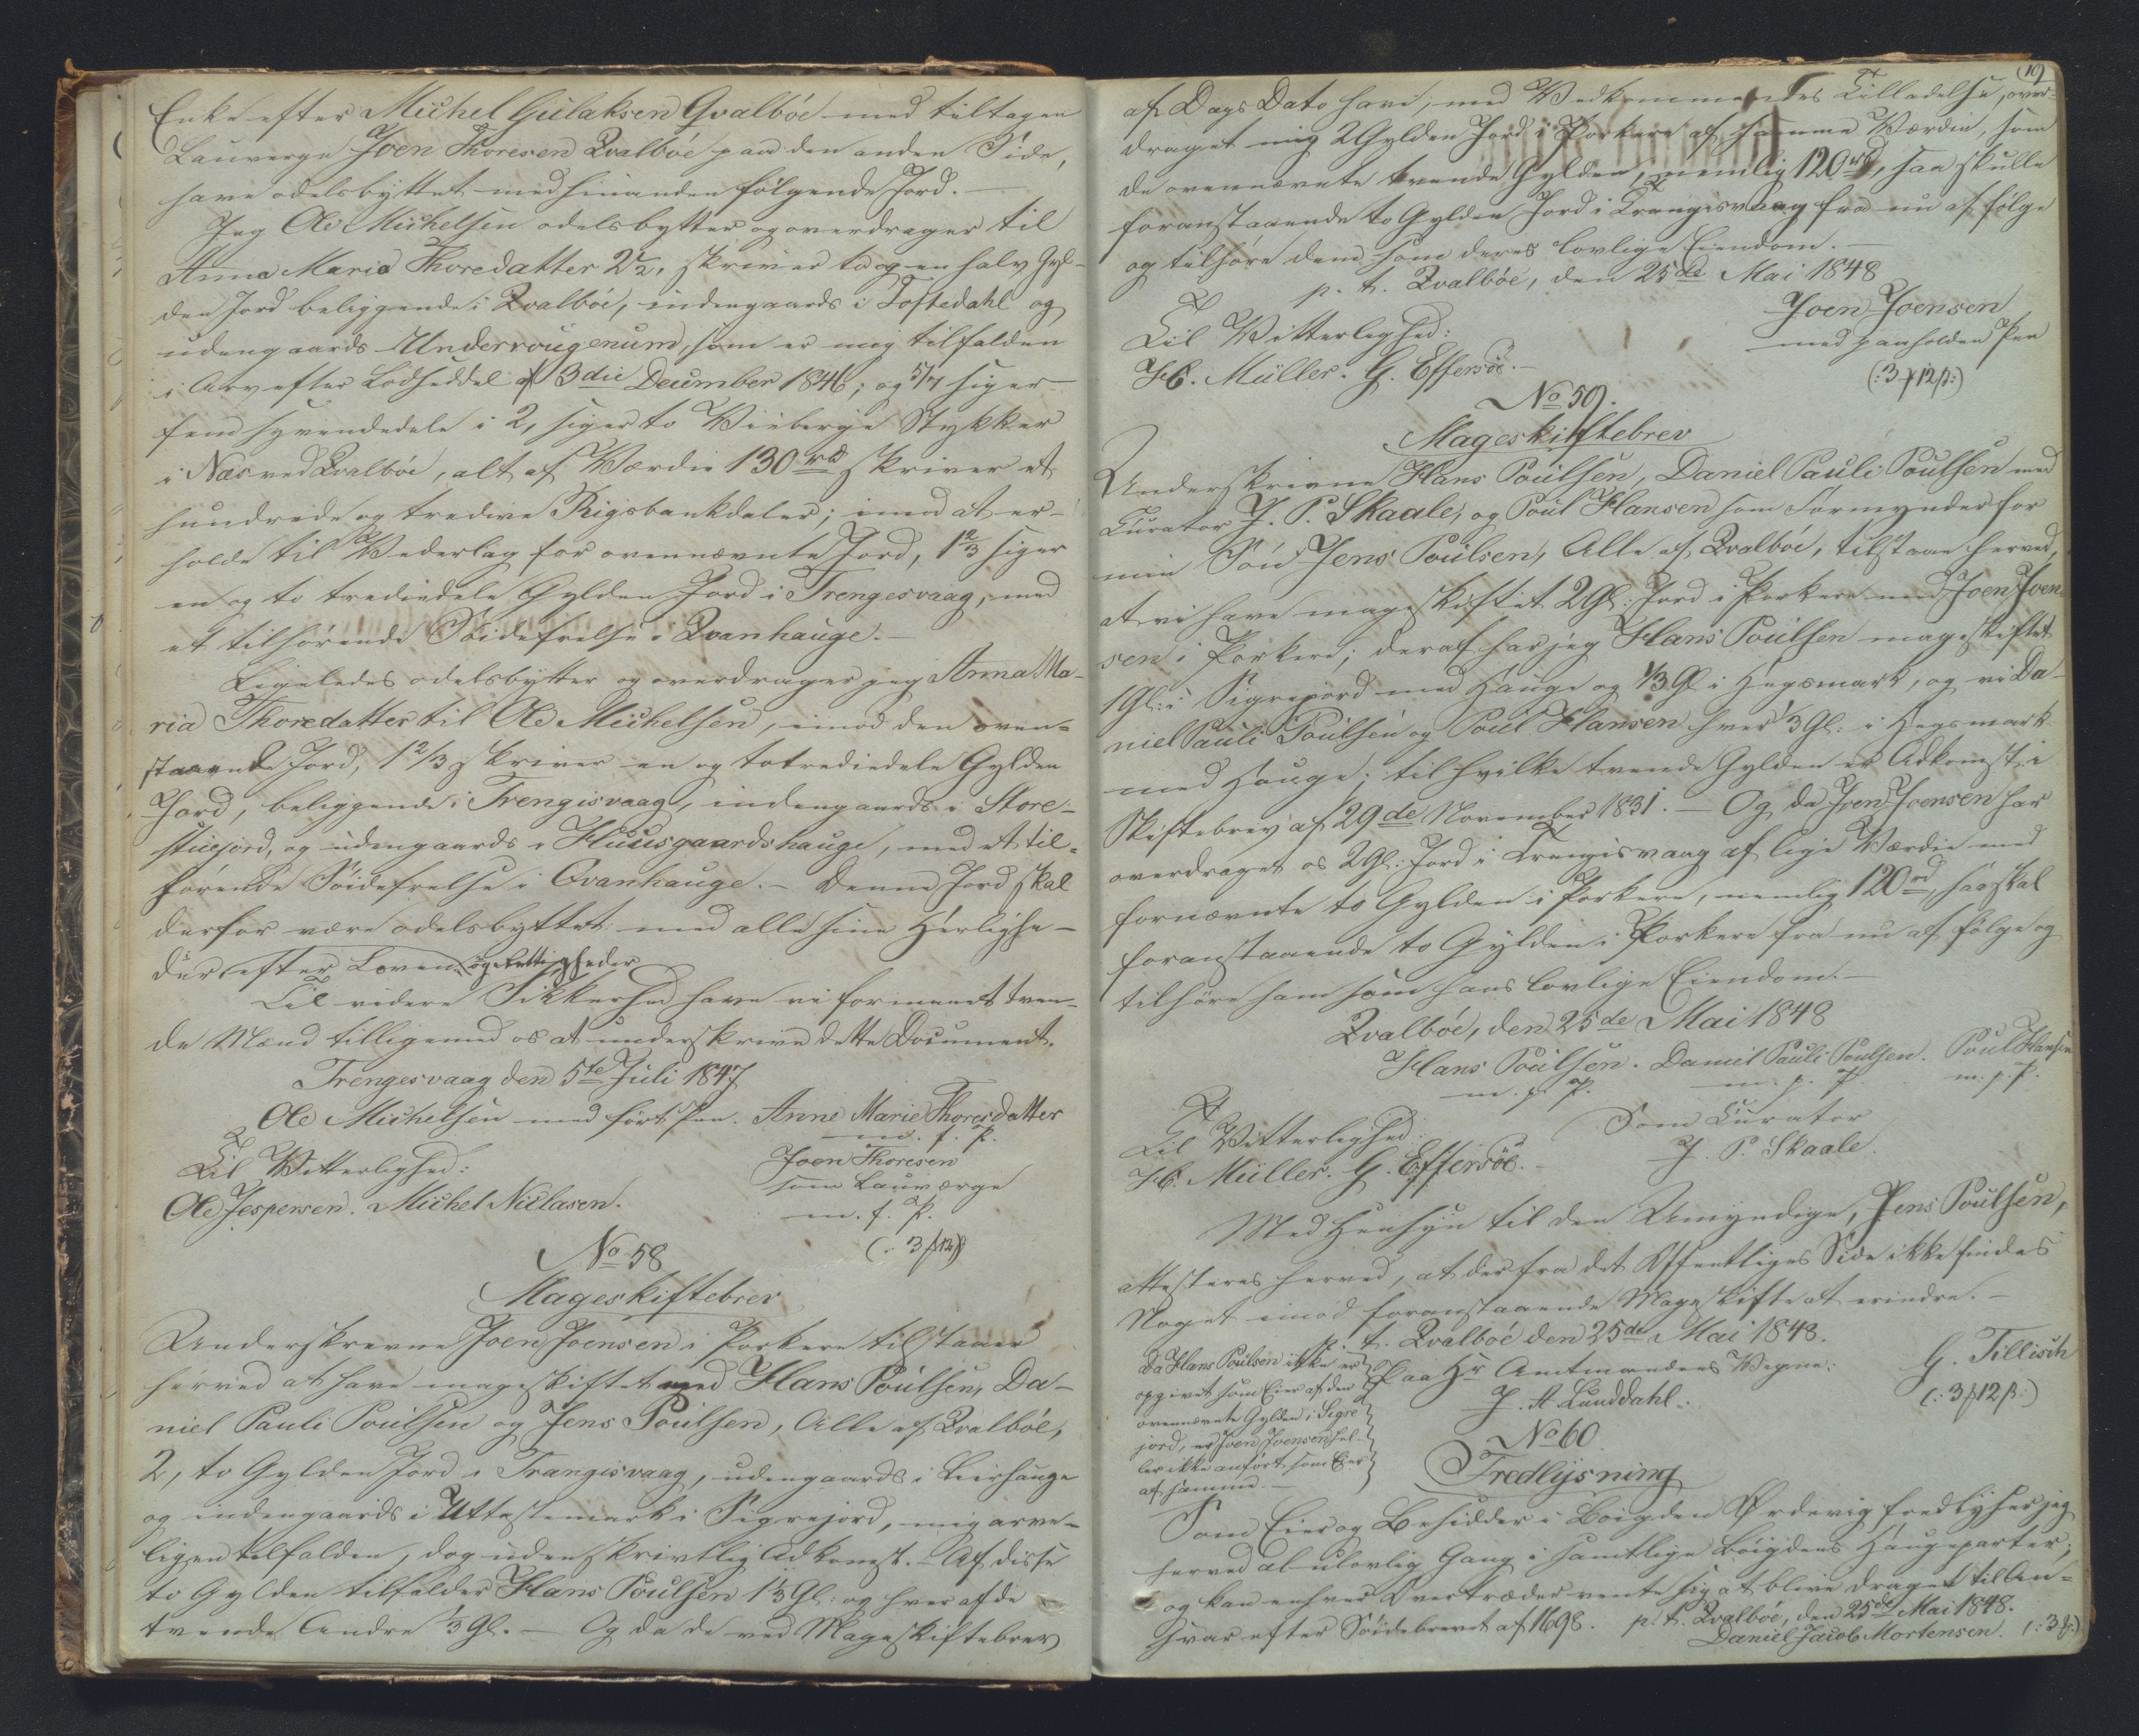 Enke efter Michel Gulaksen Qvalböe med tiltagen
Lauverge Joen Thoresen Qvalböe paa den anden Side,
have odelsbyttet med hinanden følgende Jord. —
Jeg Ole Michelsen odelsbytter og overdrager til
Anna Maria Thoredatter 2½, skriver to og en halv Gyl-
den Jord beliggende i Qvalböe, indengaards i Toftedahl og
udengaards Underrougenum, som er mig tilfalden
i Arv efter Lodseddel af 3die December 1846; og 5/7 siger
fem syvendedele i 2, siger to Viebergs Stykker
i Næs ved Qvalböe, alt af Værdie 130 rd skriver et
hundrede og tredive Rigsbankdaler; imod at er-
holde til Vederlag for ovennævnte Jord, 1 2/3 siger
en og to trediedele Gylden Jord i Trengesvaag, med
et tilhørende Söidefrelse i Qvanhauge. —
Ligeledes odelsbytter og overdrager jeg Anna Ma-
ria Thoredatter til Ole Michelsen, imod den oven-
staaende Jord, 1 2/3 skriver en og totrediedele Gylden
Jord, beliggende i Trengisvaag, indengaards i Store-
stuejord, og udengaards i Huusgaardshauge, med et til-
hørende Söidefrelse i Qvanhauge. — Denne Jord skal
derfor være odelsbyttet med alle sine Herlighe-
der efter Loven. og Rettigheder
Til videre Sikkerhed have vi formaaet tven-
de Mænd tilligemed os at underskrive dette Document.
Trengesvaag den 5te Juli 1847
Ole Michelsen med ført Pen. Anne Marie Thoresdatter
m. f. P.
Til Vitterlighed: Joen Thoresen
som Lauværge
Ole Jespersen. Michel Niclasen. m. f. P.
No 58 (: 3 f 12 ß)
Mageskiftebrev
Underskrevne Joen Joensen i Porkere tilstaaer
herved at have mageskiftet med Hans Poulsen, Da-
niel Pauli Poulsen og Jens Poulsen, Alle af Qvalböe,
2, to Gylden Jord i Trangisvaag, udengaards i Lierhauge
og indengaards i Uttastemark i Sigrejord, mig arve-
ligen tilfalden, dog uden skrivtlig Adkomst. — Af disse
to Gylden tilfalder Hans Poulsen 1 1/3 Gl: og hver af de
tvende Andre 1/3 Gl. — Og da de ved Mageskiftebrev
(10)
af Dags Dato have, med Vedkommendes Tilladelse, over-
draget mig 2 Gylden Jord i Porkere af samme Værdie, som
de ovennævnte tvende Gylden, nemlig 120 rd, saa skulle
foranstaaende to Gylden Jord i Trangisvaag fra nu af følge
og tilhöre dem som deres lovlige Eiendom. —
p. t. Qvalböe, den 25de Mai 1848
Til Vitterlighed: Joen Joensen
med paaholden Pen
H. C. Müller. G. Effersöe. — (: 3 f 12 ß :)
No 59.
Mageskiftebrev
Underskrevne Hans Poulsen, Daniel Pauli Poulsen med
Curator J. P. Skaale, og Poul Hansen som Formynder for
min Søn Jens Poulsen, Alle af Qvalböe, tilstaae herved,
at vi have mageskiftet 2 Gl: Jord i Porkere med Joen Joen-
sen i Porkere; deraf har jeg Hans Poulsen mageskiftet
1 Gl: i Sigrejord med Hauge og 1/3 Gl i Hegsmark, og vi Da-
niel Pauli Poulsen og Poul Hansen hver 1/3 Gl: i Hegsmark
med Hauge; til hvilke tvende Gylden er Adkomst i
Skiftebrev af 29de November 1831. — Og da Joen Joensen har
overdraget os 2 Gl: Jord i Trangisvaag af lige Værdie med
fornævnte to Gylden i Porkere, nemlig 120 rd, saa skal
foranstaaende to Gylden i Porkere fra nu af følge og
tilhöre ham som hans lovlige Eiendom. —
Qvalböe, den 25de Mai 1848
Hans Poulsen. Daniel Pauli Poulsen. Poul Hansen
m. p. P. m. p. P. m. p. P.
Til Vitterlighed: Som Curator
H. C. Müller. G. Effersöe. — J. P. Skaale.
Med Hensyn til den Umyndige, Jens Poulsen,
attesteres herved, at der fra det Offentliges Side ikke findes
Noget imod foranstaaende Mageskifte at erindre. —
p. t. Qvalböe den 25de Mai 1848.
Paa Hr Amtmandens Vegne: G. Tillisch
J. A. Lunddahl. (: 3 f 12 ß :)
Da Hans Poulsen ikke er
opgivet som Eier af den
ovennævnte Gylden i Sigre
jord, er Joen Joensen hel-
ler ikke anført som Eier
af samme. —
No 60.
Fredlysning
Som Eier og Besidder i Boigden Ørdevig fredlyser jeg
herved al ulovlig Gang i samtlige Böigdens Haugeparter;
og kan enhver Overtræder vente sig at blive draget til An-
svar efter Söidebrevet af 1698. p. t. Qvalböe, den 25de Mai 1848.
Daniel Jacob Mortensen. (: 3 f :)